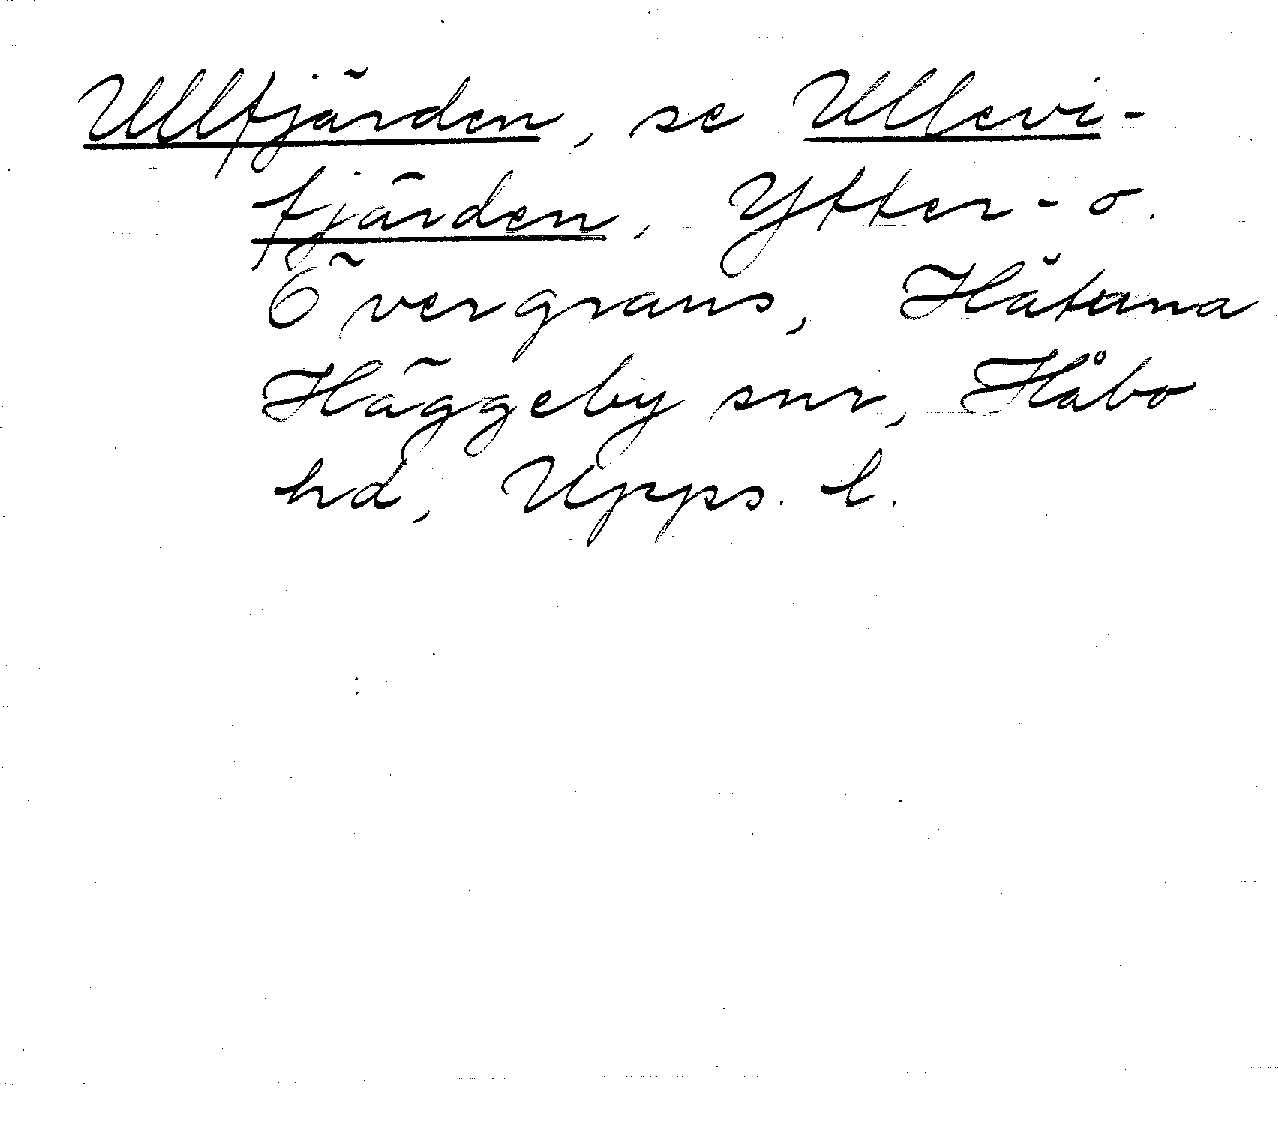 Ullfjärden, se Ullevi-
fjärden, Ytter- o.
Övergrans, Håtuna
Häggeby snr, Håbo
hd, Upps. l.